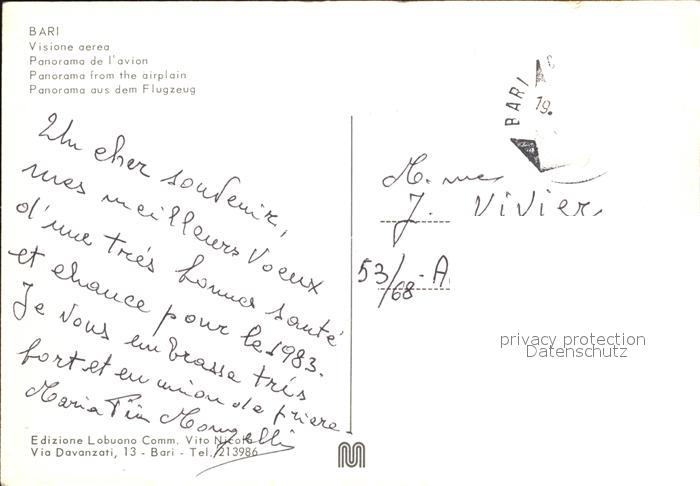 BARI
Visione aerea
Panorama de l'avion
Panorama from the airplain
Panorama aus dem Flugzeug
Un cher souvenir,
mes meilleurs Voeux
d'une très bonne santé
et chance pour le 1983.
Je Vous embrasse très
fort et en union de prière.
Maria
BARI
19.
M.me
J. Vivier
53/68-A
privacy protection
Datenschutz
Edizione Lobuono Comm. Vito Nicola
Via Davanzati, 13 - Bari - Tel. 213986